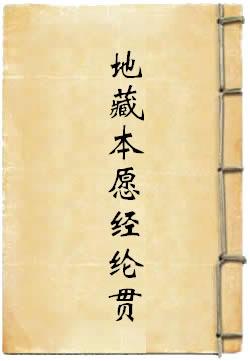 地藏本愿经纶贯